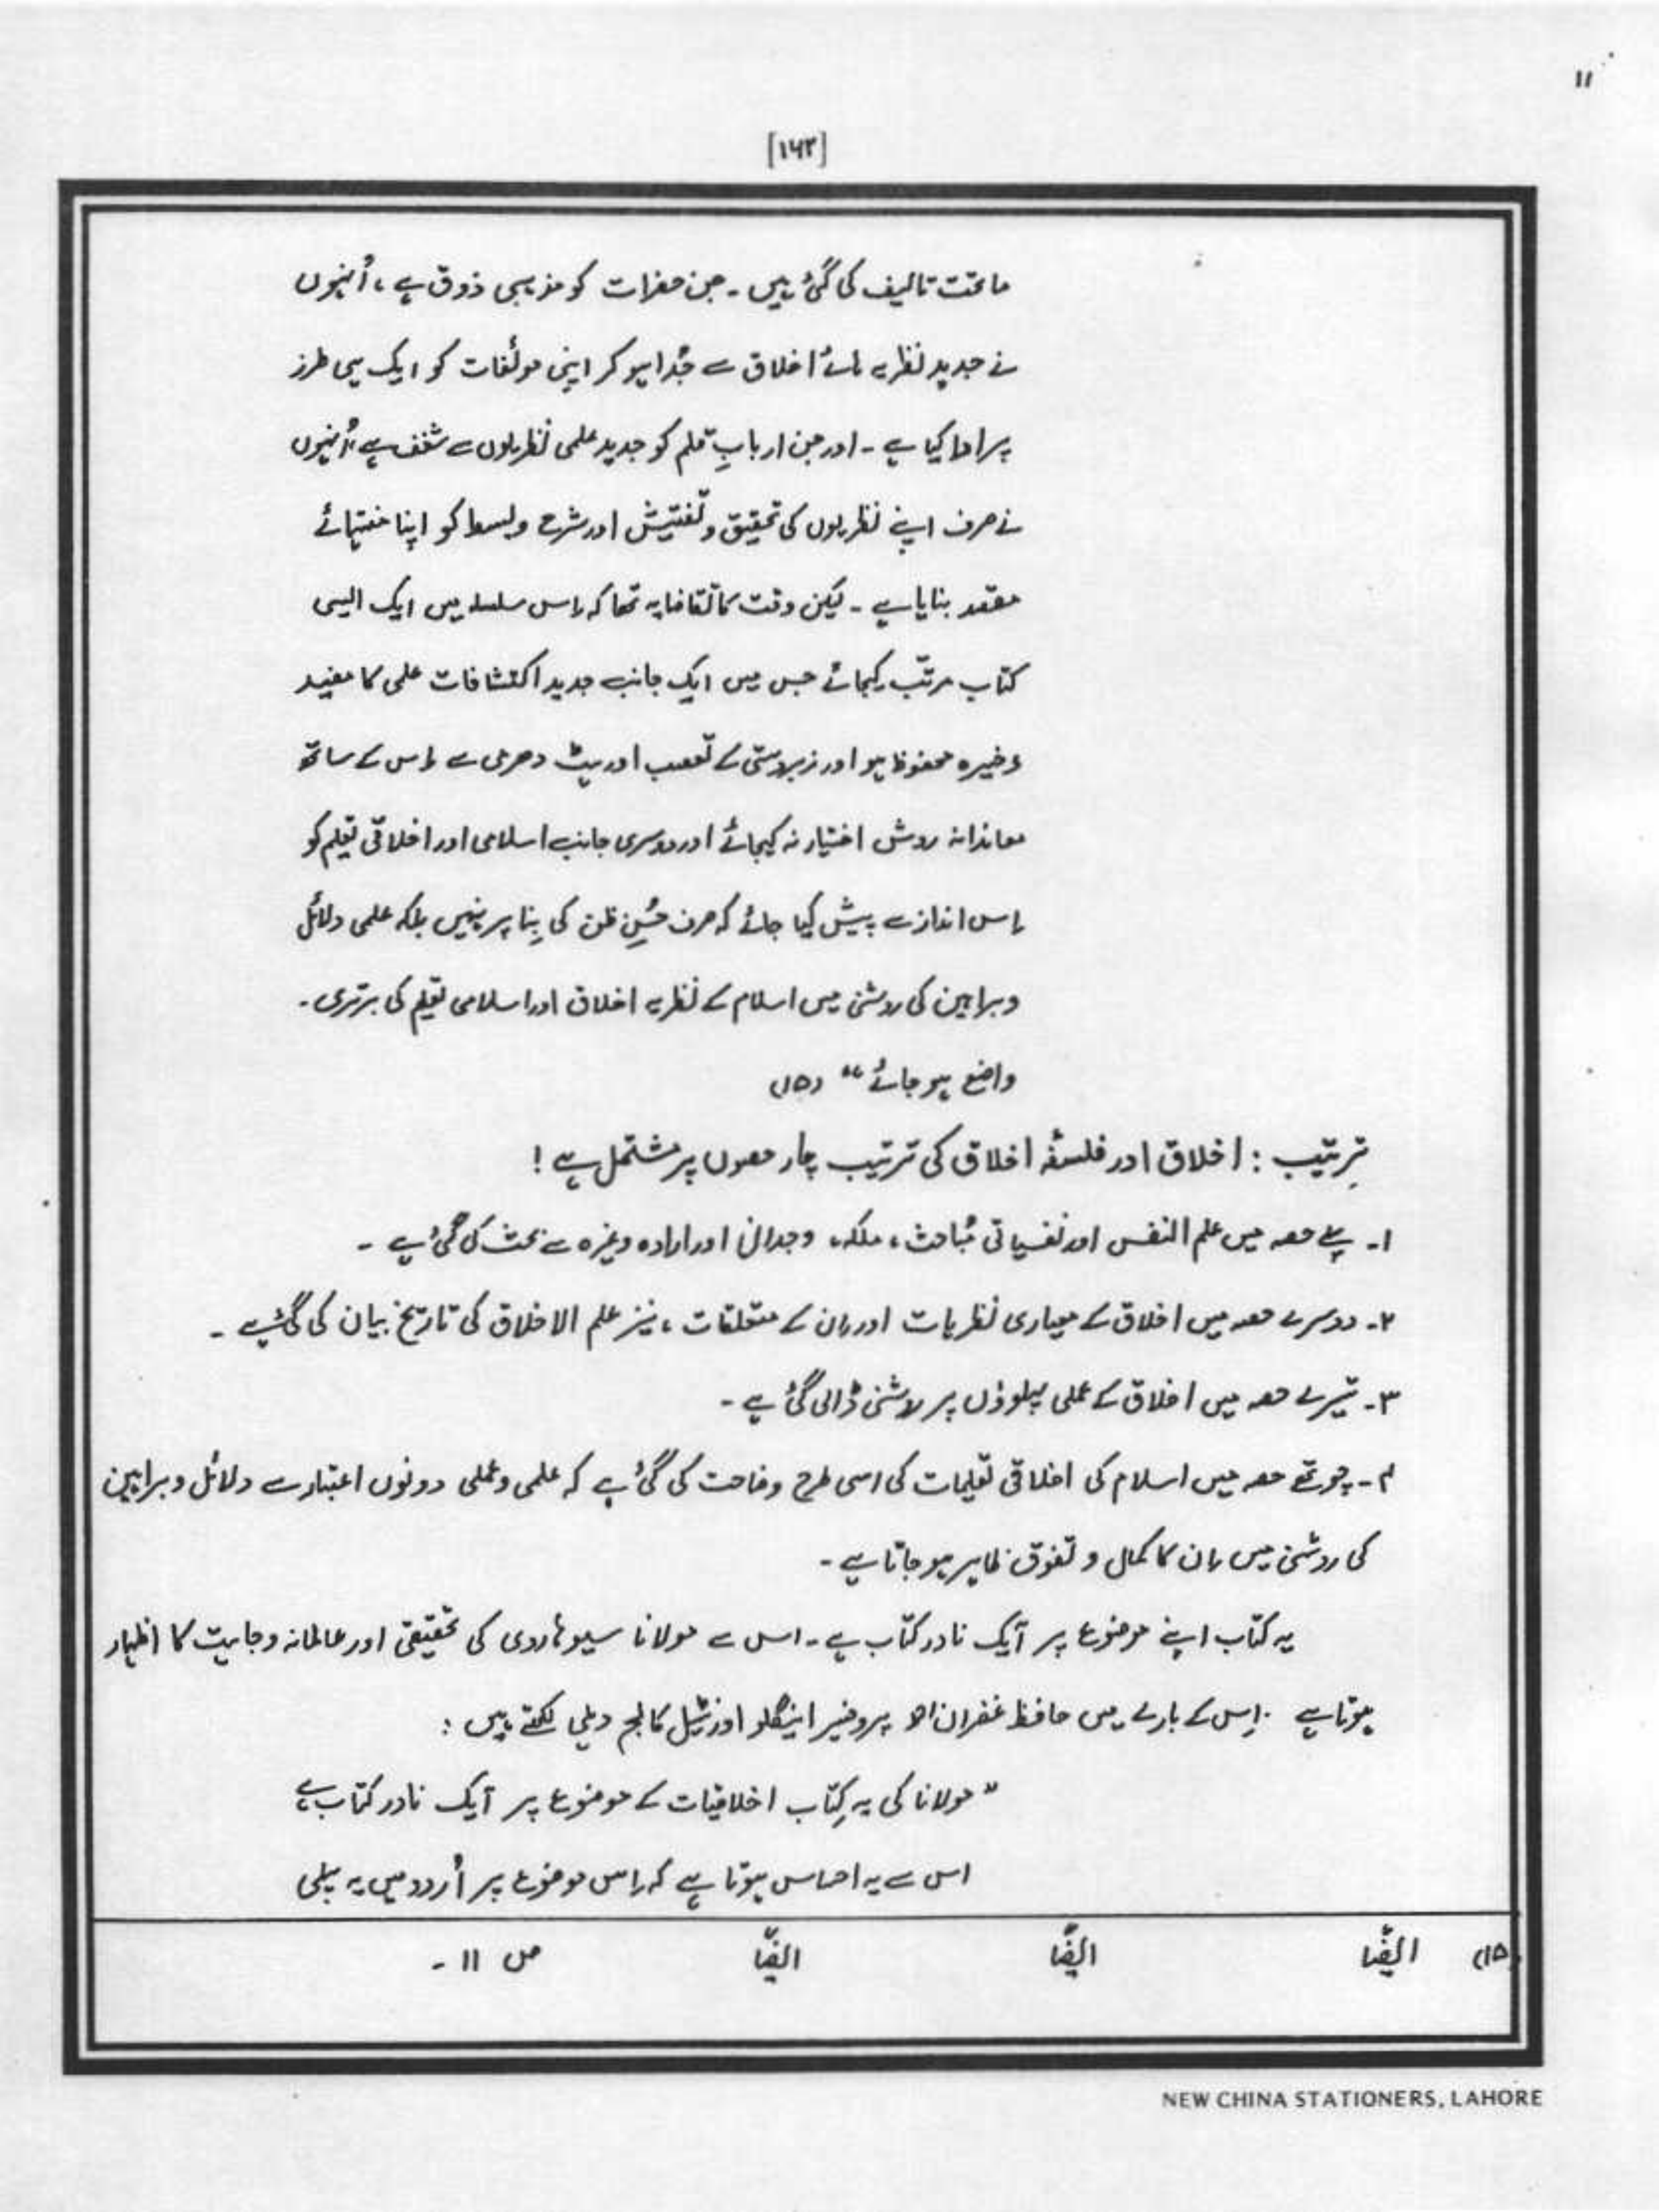 ۱۱
[۱۶۲]
ماتحت تالیف کی گئی ہیں ۔ جن حضرات کو مذہبی ذوق ہے ، اُنہوں
نے جدید نظریہ ہائے اخلاق سے جُدا ہو کر اپنی مولٔفات کو ایک ہی طرز
پر ادا کیا ہے ۔ اور جن اربابِ قلم کو جدید علمی نظریوں سے شغف ہے اُنہوں
نے صرف اپنے نظریوں کی تحقیق و تفتیش اور شرح و بسط کو اپنا منتہائے
مقصد بنایا ہے ۔ لیکن وقت کا تقاضا یہ تھا کہ اِس سلسلہ میں ایک ایسی
کتاب مرتّب کیجائے جس میں ایک جانب جدید اکتشافات علمی کا مفید
ذخیرہ محفوظ ہو اور زبردستی کے تعصب اور ہٹ دھرمی سے اِس کے ساتھ
معاندانہ روش اختیار نہ کیجائے اور دوسری جانب اسلامی اور اخلاقی تعلیم کو
اِس انداز سے پیش کیا جائے کہ صرف حُسنِ ظن کی بِنا پر نہیں بلکہ علمی دلائل
و براہین کی روشنی میں اسلام کے نظریہ اخلاق اور اسلامی تعلیم کی برتری ۔
واضح ہو جائے “ (۱۵)
تِرتیب : اخلاق اور فلسفۂ اخلاق کی ترتیب چار حصوں پر مشتمل ہے !
۱۔ پہلے حصہ میں علم النفس اور نفسیاتی مُباحث ، ملکہ ، وجدان اور ارادہ وغیرہ سے بحث کی گئی ہے ۔
۲۔ دوسرے حصہ میں اخلاق کے معیاری نظریات اور اِن کے متعلقات ، نیز علم الاخلاق کی تاریخ بیان کی گئی ہے ۔
۳۔ تیسرے حصہ میں اخلاق کے عملی پہلوؤں پر روشنی ڈالی گئی ہے ۔
۴۔ چوتھے حصہ میں اسلام کی اخلاقی تعلیمات کی اسی طرح وضاحت کی گئی ہے کہ علمی و عملی دونوں اعتبار سے دلائل و براہین
کی روشنی میں اِن کا کمال و تفوق ظاہر ہو جاتا ہے ۔
یہ کتاب اپنے موضوع پر ایک نادر کتاب ہے ۔ اس سے مولانا سیوہاروی کی تحقیقی اور عالمانہ وجاہت کا اظہار
ہوتا ہے ۔ اِس کے بارے میں حافظ غفران احمد پروفیسر اینگلو اورنٹیل کالج دہلی لکھتے ہیں :
” مولانا کی یہ کِتاب اخلاقیات کے موضوع پر ایک نادر کتاب ہے
اس سے یہ احساس ہوتا ہے کہ اِس موضوع پر اُردو میں یہ پہلی
(۱۵) ایضًا ایضًا ایضًا ص ۱۱ ۔
NEW CHINA STATIONERS, LAHORE